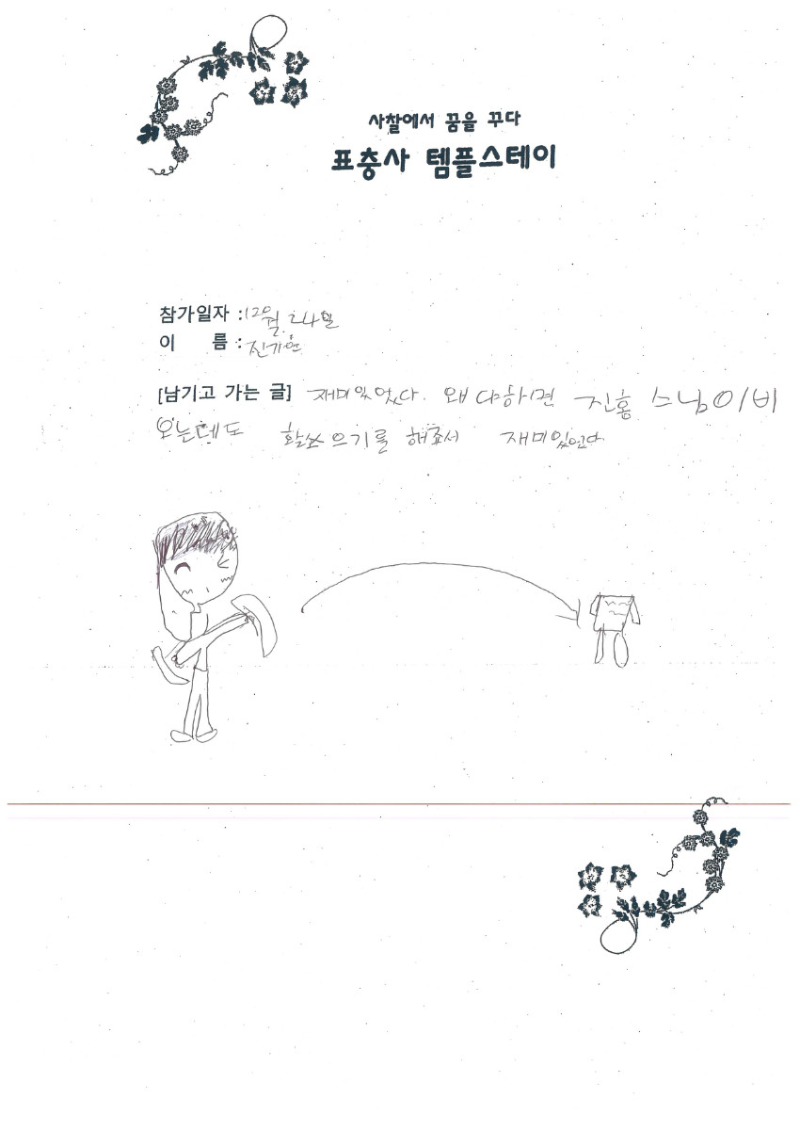 사찰에서 꿈을 꾸다
표충사 템플스테이
참가일자 : 12월 24일
이 름 : 진가현
[남기고 가는 글] 재미있었다. 왜냐하면 진홍 스님이 비
오는데도 활쏘으기를 해줘서 재미있었다